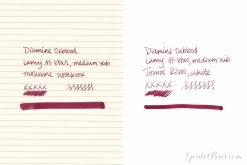 Diamine Oxblood
Lamy Al-Star, medium nib
moleskine notebook
xxxxx sssssss
Diamine Oxblood
Lamy Al-Star, medium nib
Tomoe River, white
xxxxx sssssss